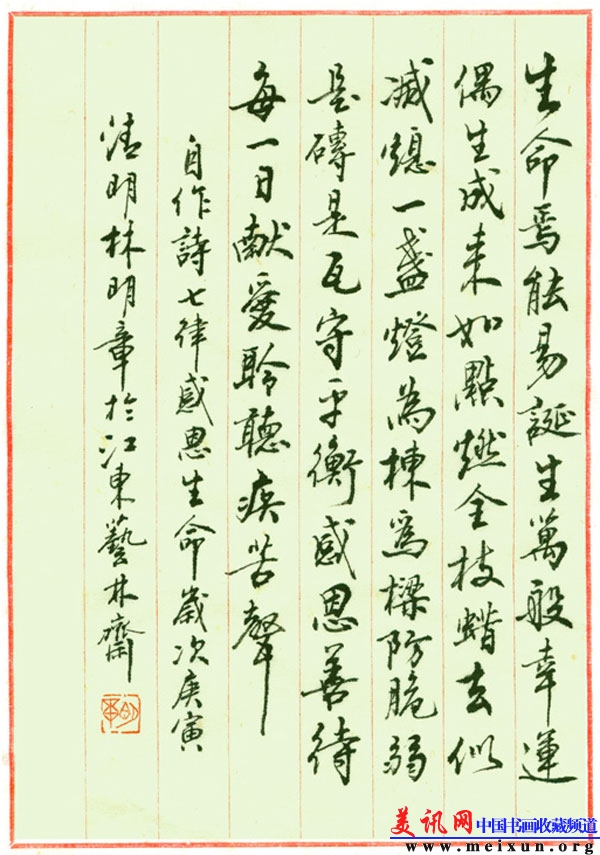 生命焉能易誕生萬般幸運
偶生成来如點燃全枝蠟去似
滅熄一盞燈為棟為樑防脆弱
是磚是瓦守平衡感恩善待
每一日献愛聆聽疾苦聲
自作詩七律感恩生命歲次庚寅
清明林明章於江東藝林齋
美讯网 中国书画收藏频道
www.meixun.org